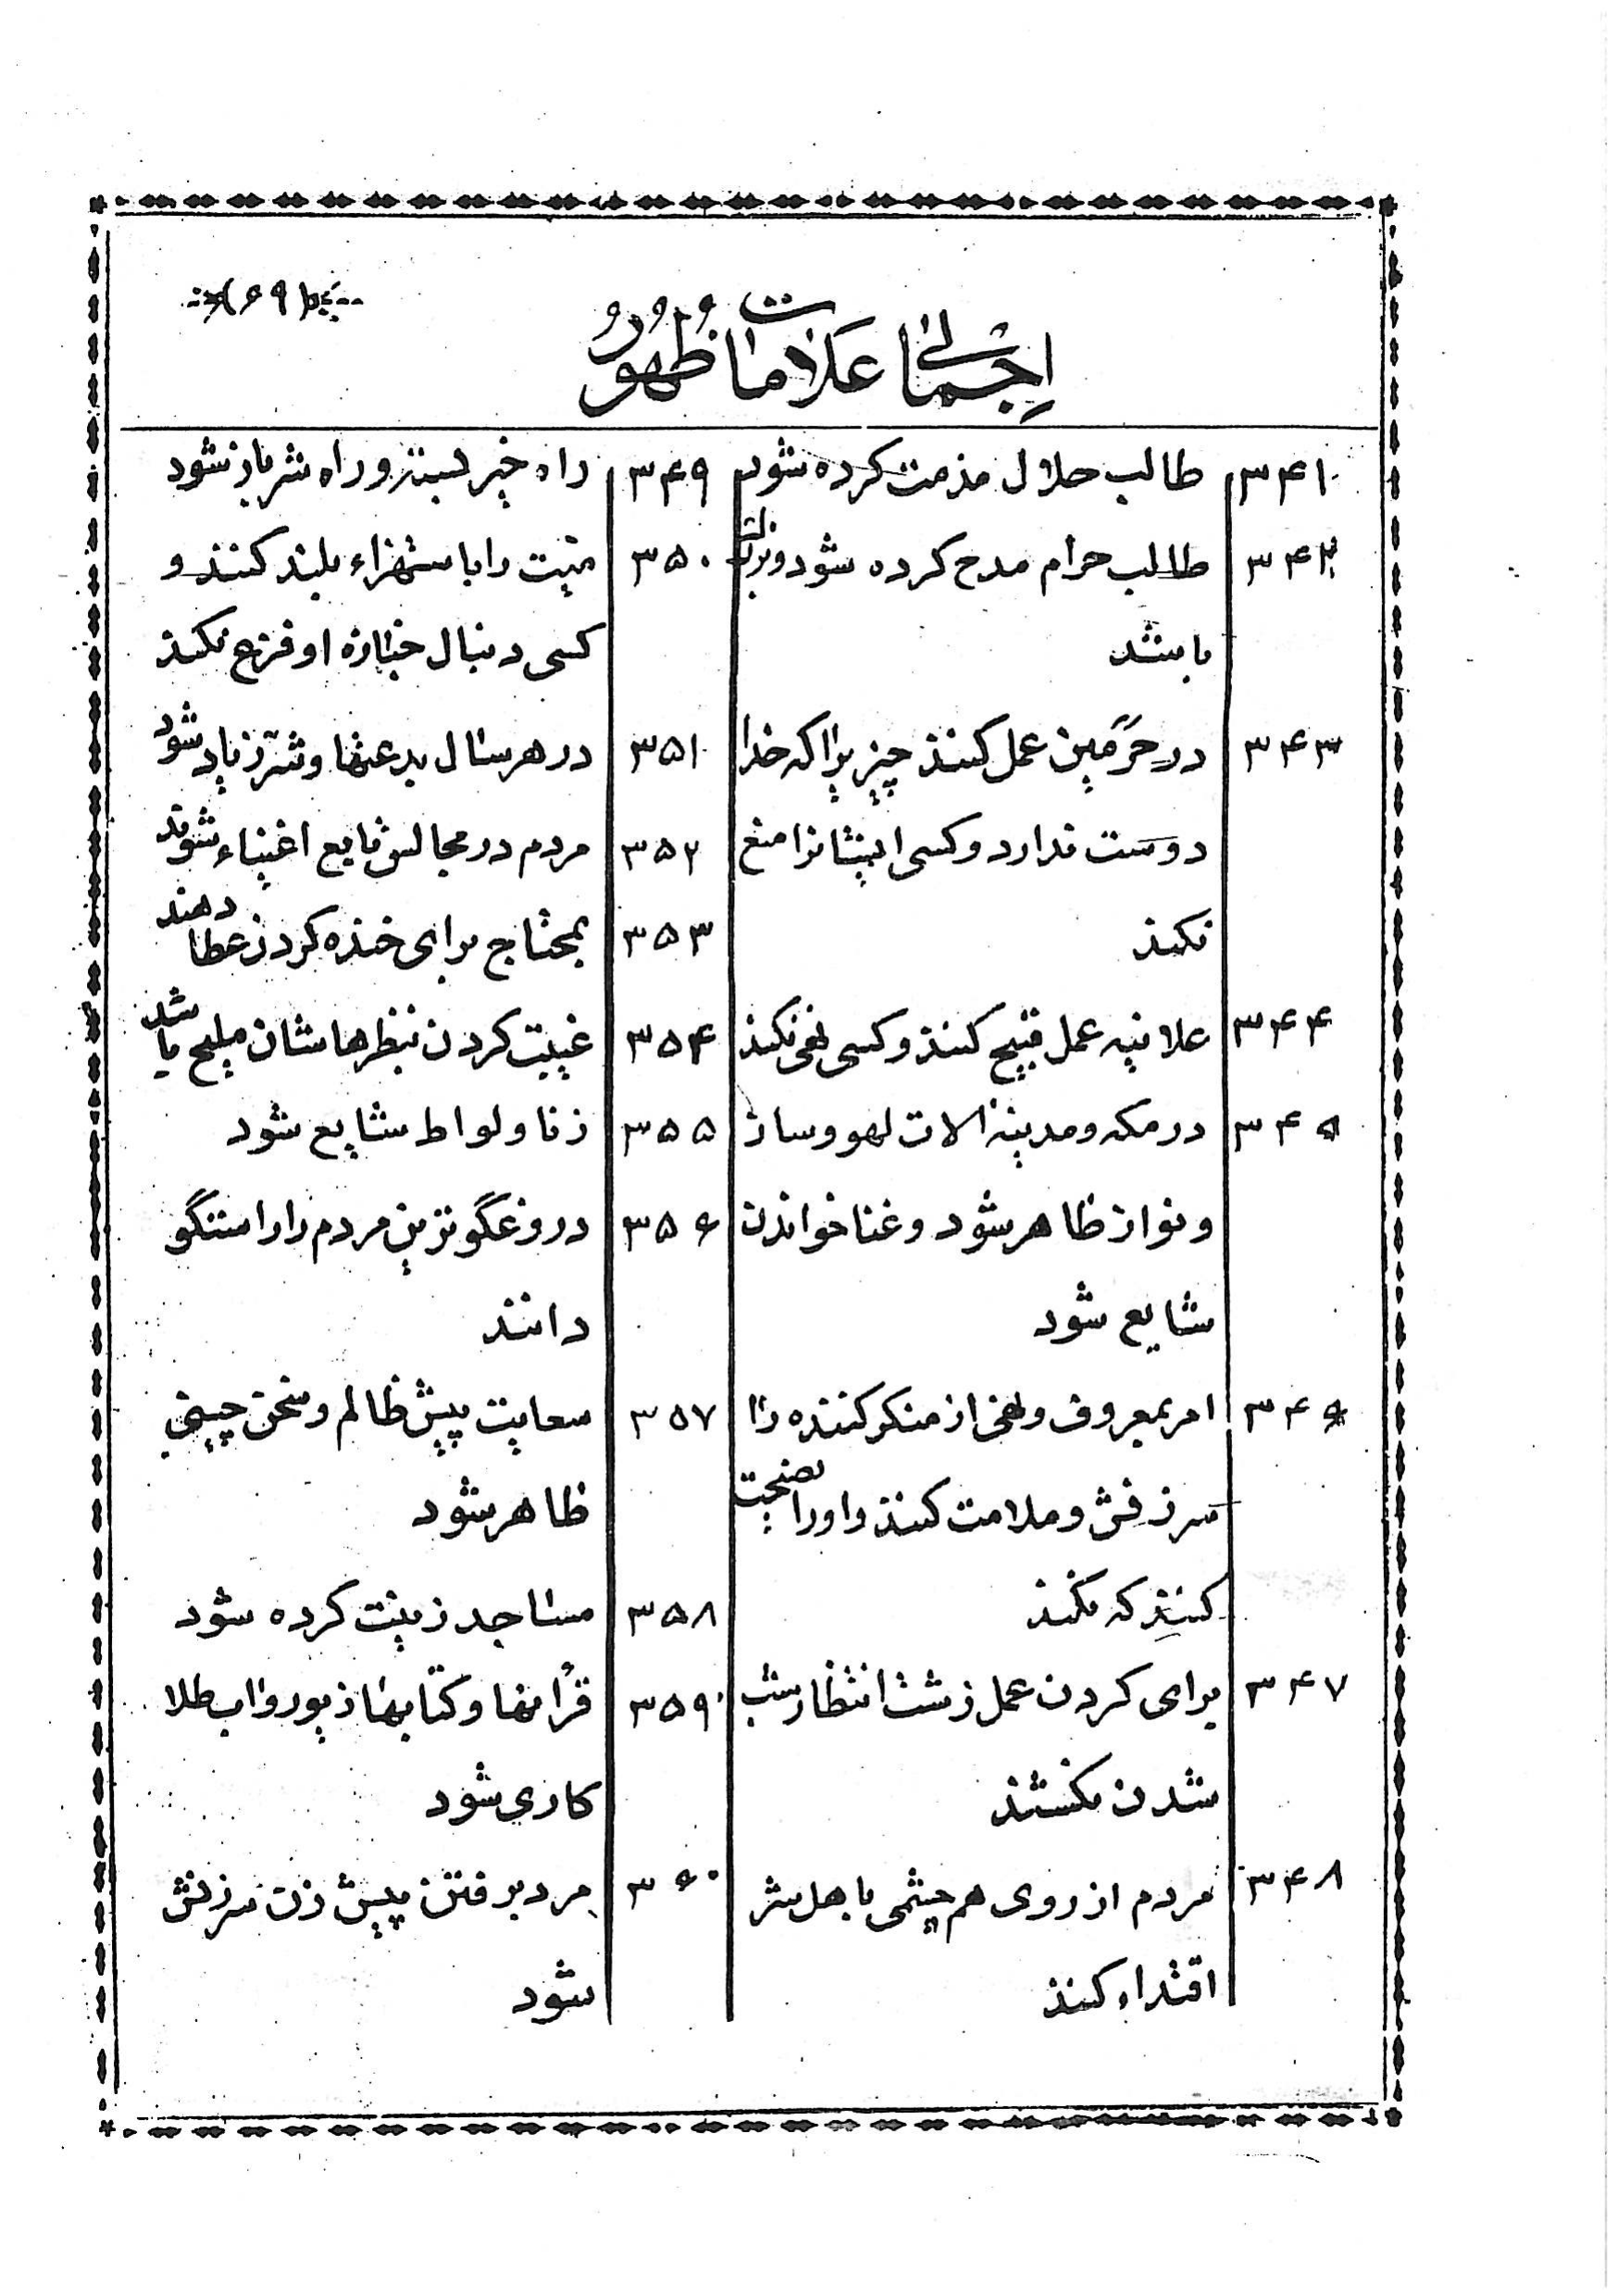 (۶۹)
اجمالی علامات ظهور
۳۴۱ طالب حلال مذمت کرده شود
۳۴۲ طالب حرام مدح کرده شود و
باشند
۳۴۳ در حَرَمین عمل کنند چیزیرا که خدا
دوست ندارد و کسی ایشانرا منع
نکند
۳۴۴ علانیه عمل قبیح کنند و کسی نهی نکند
۳۴۵ در مکه و مدینه الات لهو و ساز
و نواز ظاهر شود و غنا خواندن
شایع شود
۳۴۶ امر بمعروف و نهی از منکر کننده را
سرزنش و ملامت کنند و او را نصیحت
کنند که نکند
۳۴۷ برای کردن عمل زشت انتظار شب
شدن نکشند
۳۴۸ مردم از روی هم چشمی باهل شر
اقتداء کنند
۳۴۹ راه خیر بسته و راه شر باز شود
۳۵۰ میّت را باستهزاء بلند کنند و
کسی دنبال جنازه او فزع نکند
۳۵۱ در هر سال بدعتها و شرّ زیاد شود
۳۵۲ مردم در مجالس تابع اغنیاء شوند
۳۵۳ بمحتاج برای خنده کردن عطا دهند
۳۵۴ غیبت کردن بنظرهاشان ملیح باشد
۳۵۵ زنا و لواط شایع شود
۳۵۶ دروغگوترین مردم را راستگو
دانند
۳۵۷ سعایت پیش ظالم و سخن چینی
ظاهر شود
۳۵۸ مساجد زینت کرده شود
۳۵۹ قرآنها و کتابها زیور و اب طلا
کاری شود
۳۶۰ مرد برفتن پیش زن سرزنش
شود